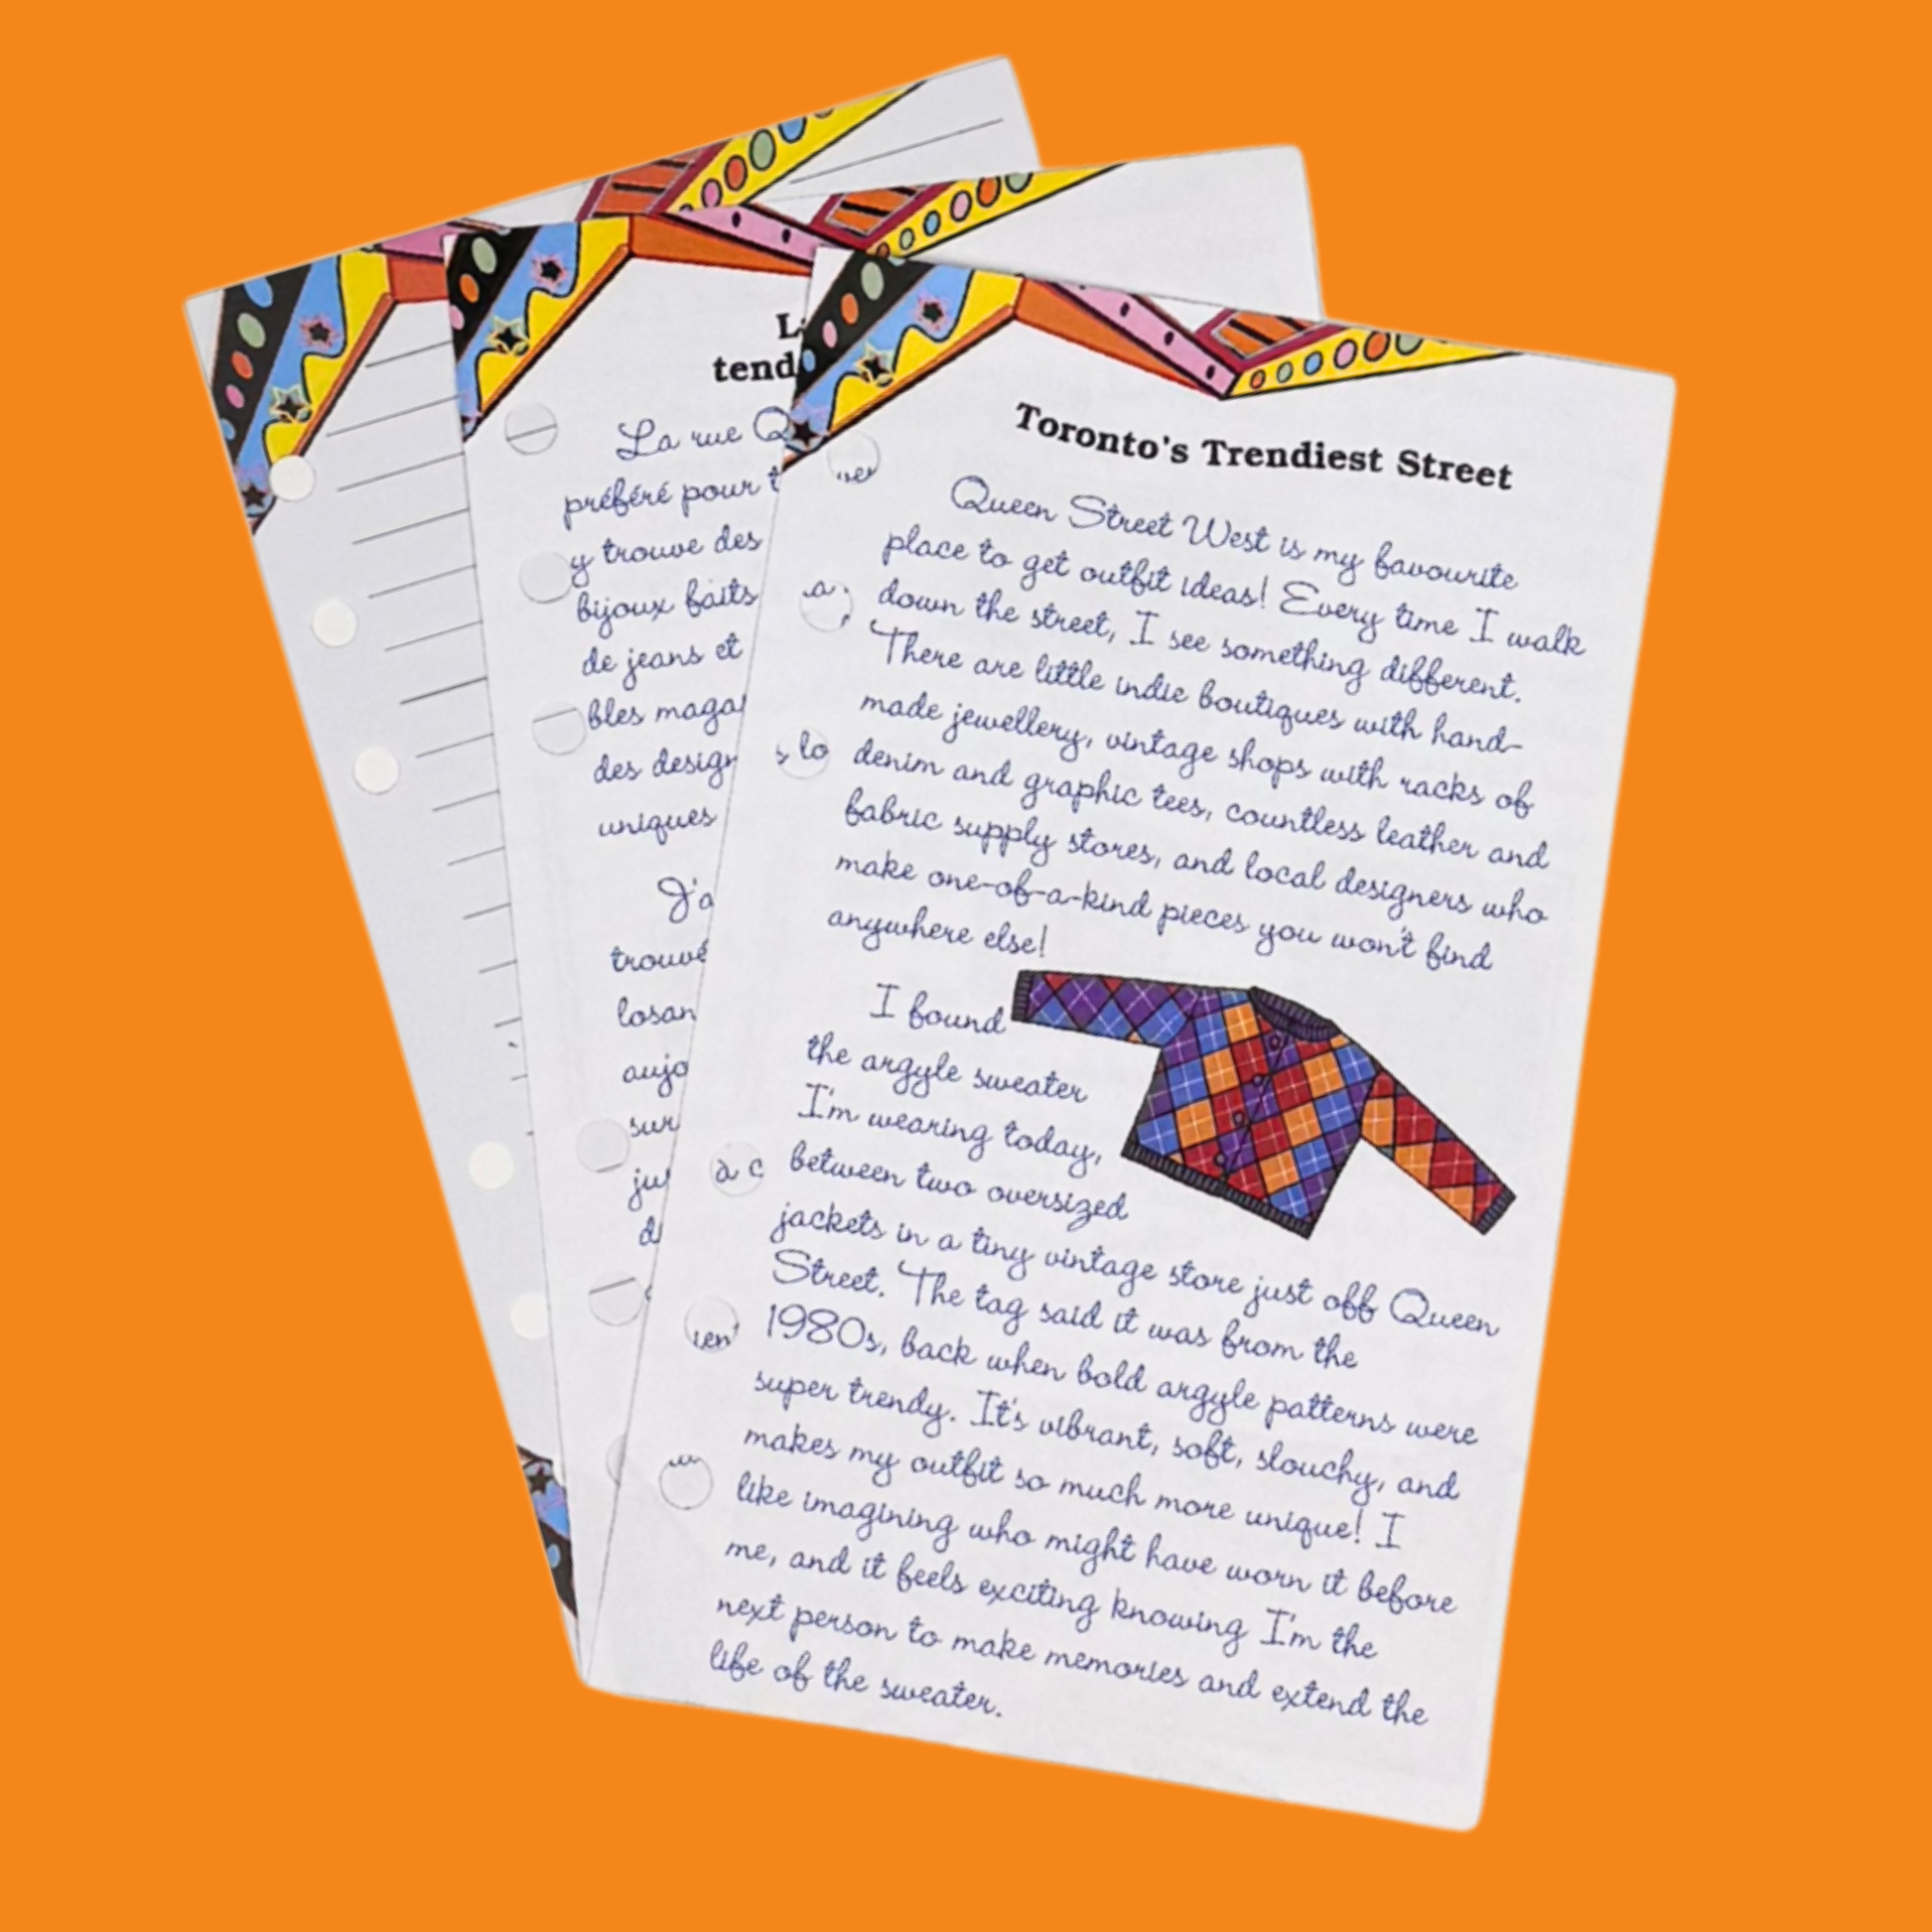 Toronto's Trendiest Street
Queen Street West is my favourite
place to get outfit ideas! Every time I walk
down the street, I see something different.
There are little indie boutiques with hand-
made jewellery, vintage shops with racks of
denim and graphic tees, countless leather and
fabric supply stores, and local designers who
make one-of-a-kind pieces you won't find
anywhere else!
I found
the argyle sweater
I'm wearing today,
between two oversized
jackets in a tiny vintage store just off Queen
Street. The tag said it was from the
1980s, back when bold argyle patterns were
super trendy. It's vibrant, soft, slouchy, and
makes my outfit so much more unique! I
like imagining who might have worn it before
me, and it feels exciting knowing I'm the
next person to make memories and extend the
life of the sweater.
La rue
préféré pour
y trouve des
bijoux faits
de jeans et
bles
des
uniques
sur